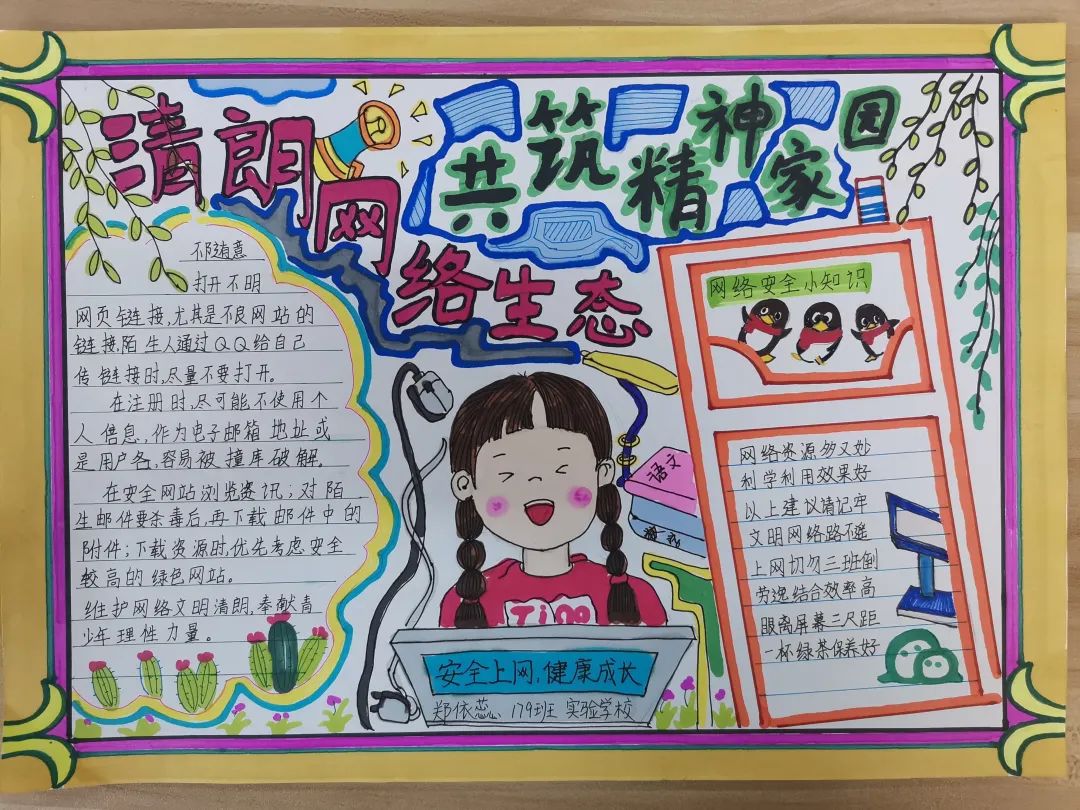 清朗网络生态
共筑精神家园
不随意
打开不明
网页链接,尤其是不良网站的
链接.陌生人通过QQ给自己
传链接时,尽量不要打开。
在注册时,尽可能不使用个
人信息,作为电子邮箱地址或
是用户名,容易被撞库破解。
在安全网站浏览资讯;对陌
生邮件要杀毒后,再下载邮件中的
附件;下载资源时,优先考虑安全
较高的绿色网站。
维护网络文明清朗,奉献青
少年理性力量。
语文
安全上网,健康成长
郑依蕊 179班 实验学校
网络安全小知识
网络资源多又妙
利学利用效果好
以上建议请记牢
文明网络路不遥
上网切勿三班倒
劳逸结合效率高
眼离屏幕三尺距
一杯绿茶保养好